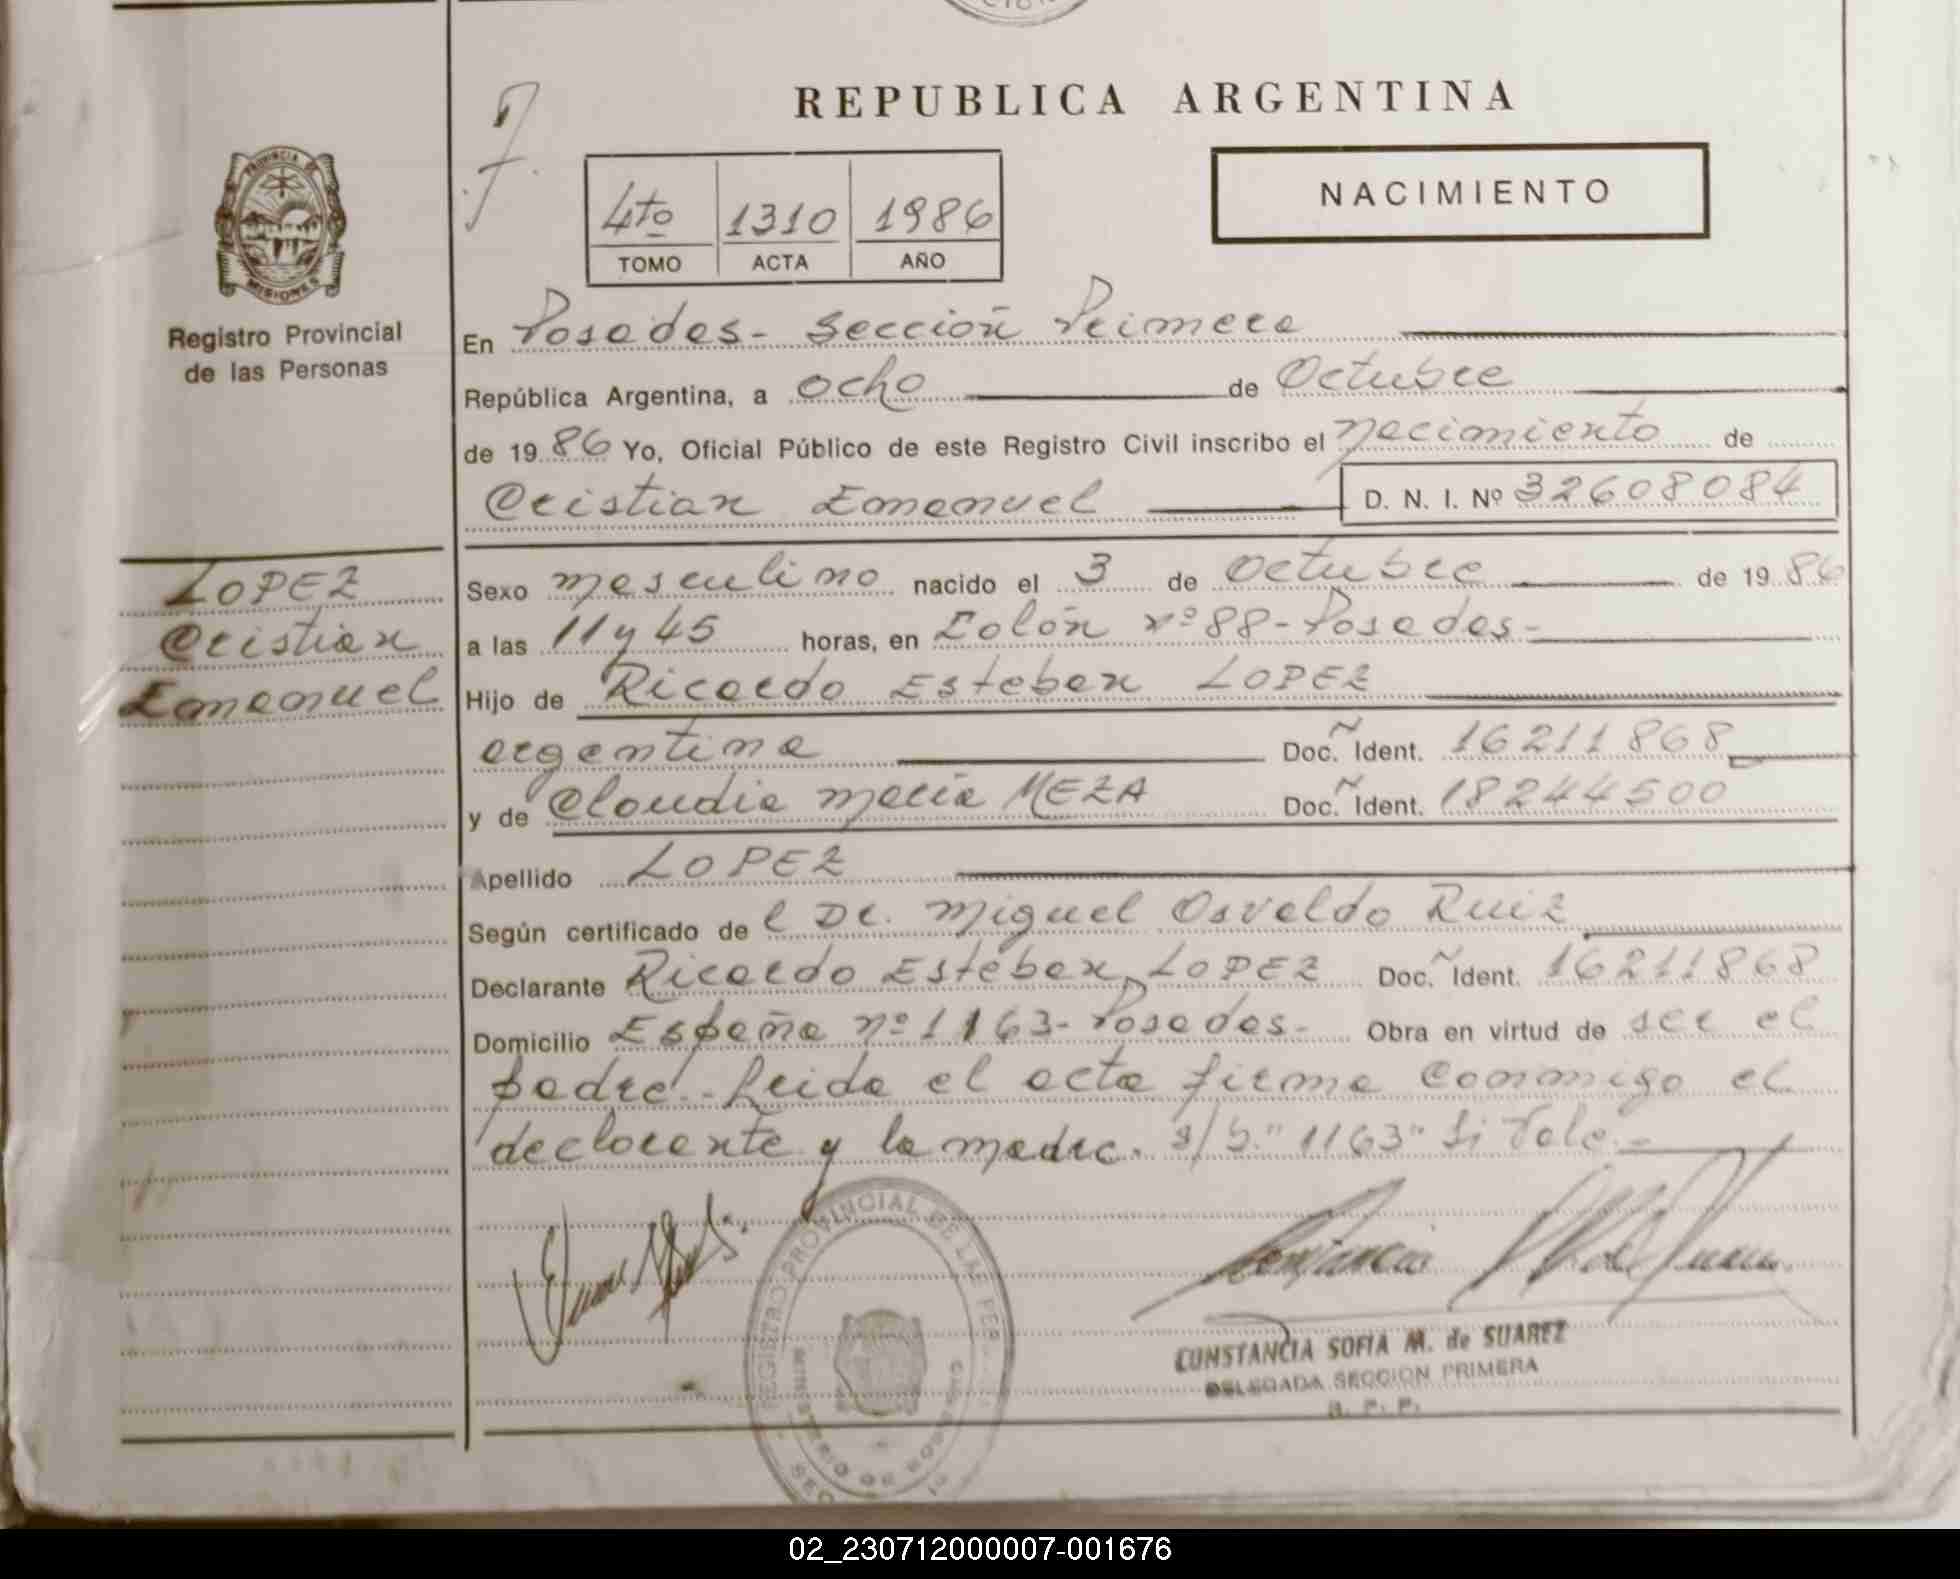 REPUBLICA ARGENTINA
NACIMIENTO
4to 1310 1986
TOMO ACTA AÑO
PROVINCIA DE
MISIONES
Registro Provincial
de las Personas
En Posadas - Sección Primera
República Argentina, a ocho de Octubre
de 1986 Yo, Oficial Público de este Registro Civil inscribo el nacimiento de
Cristian Emanuel D. N. I. Nº 32608084
LOPEZ
Cristian
Emanuel
Sexo masculino nacido el 3 de Octubre de 1986
a las 11 y 45 horas, en Colón nº 88 - Posadas -
Hijo de Ricardo Esteban LOPEZ
argentina Doc. Ident. 16211868
y de Claudia María MEZA Doc. Ident. 18244500
Apellido LOPEZ
Según certificado de l Dr. Miguel Osvaldo Ruiz
Declarante Ricardo Esteban LOPEZ Doc. Ident. 16211868
Domicilio España nº 1163 - Posadas - Obra en virtud de ser el
padre. - Leida el acta firma conmigo el
declarante y la madre. s/b. "1163" Si Vale. -
REGISTRO PROVINCIAL DE LAS PER
MINISTERIO DE GOBIERNO
CONSTANCIA SOFIA M. de SUAREZ
DELEGADA SECCION PRIMERA
R. P. P.
02_230712000007-001676